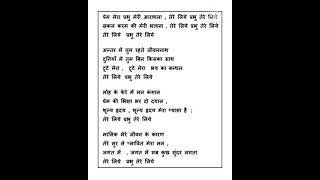 प्रेम मेरा प्रभु मेरी आराधना , तेरे लिये प्रभु तेरे लिये
सकल करम की मेरी भावना , तेरे लिये प्रभु तेरे लिये
तेरे लिये प्रभु तेरे लिये
अन्तर में तुम रहते जीवननाथ
दुनियाँ में तुम बिन किसका साथ
टूटे मेरा , टूटे मेरा भय का बन्धन
तेरे लिये प्रभु तेरे लिये
मोह के फेरे में मन कंगाल
प्रेम की भिक्षा भर दो दयाल ,
शून्य हृदय , शून्य हृदय मेरा प्यासा है ;
तेरे लिये प्रभु तेरे लिये
मालिक मेरे जीवन के कारण
तेरे सुर से प्लावित मेरा मन ,
जगत में , जगत में सब कुछ सुंदर लगता
तेरे लिये प्रभु तेरे लिये